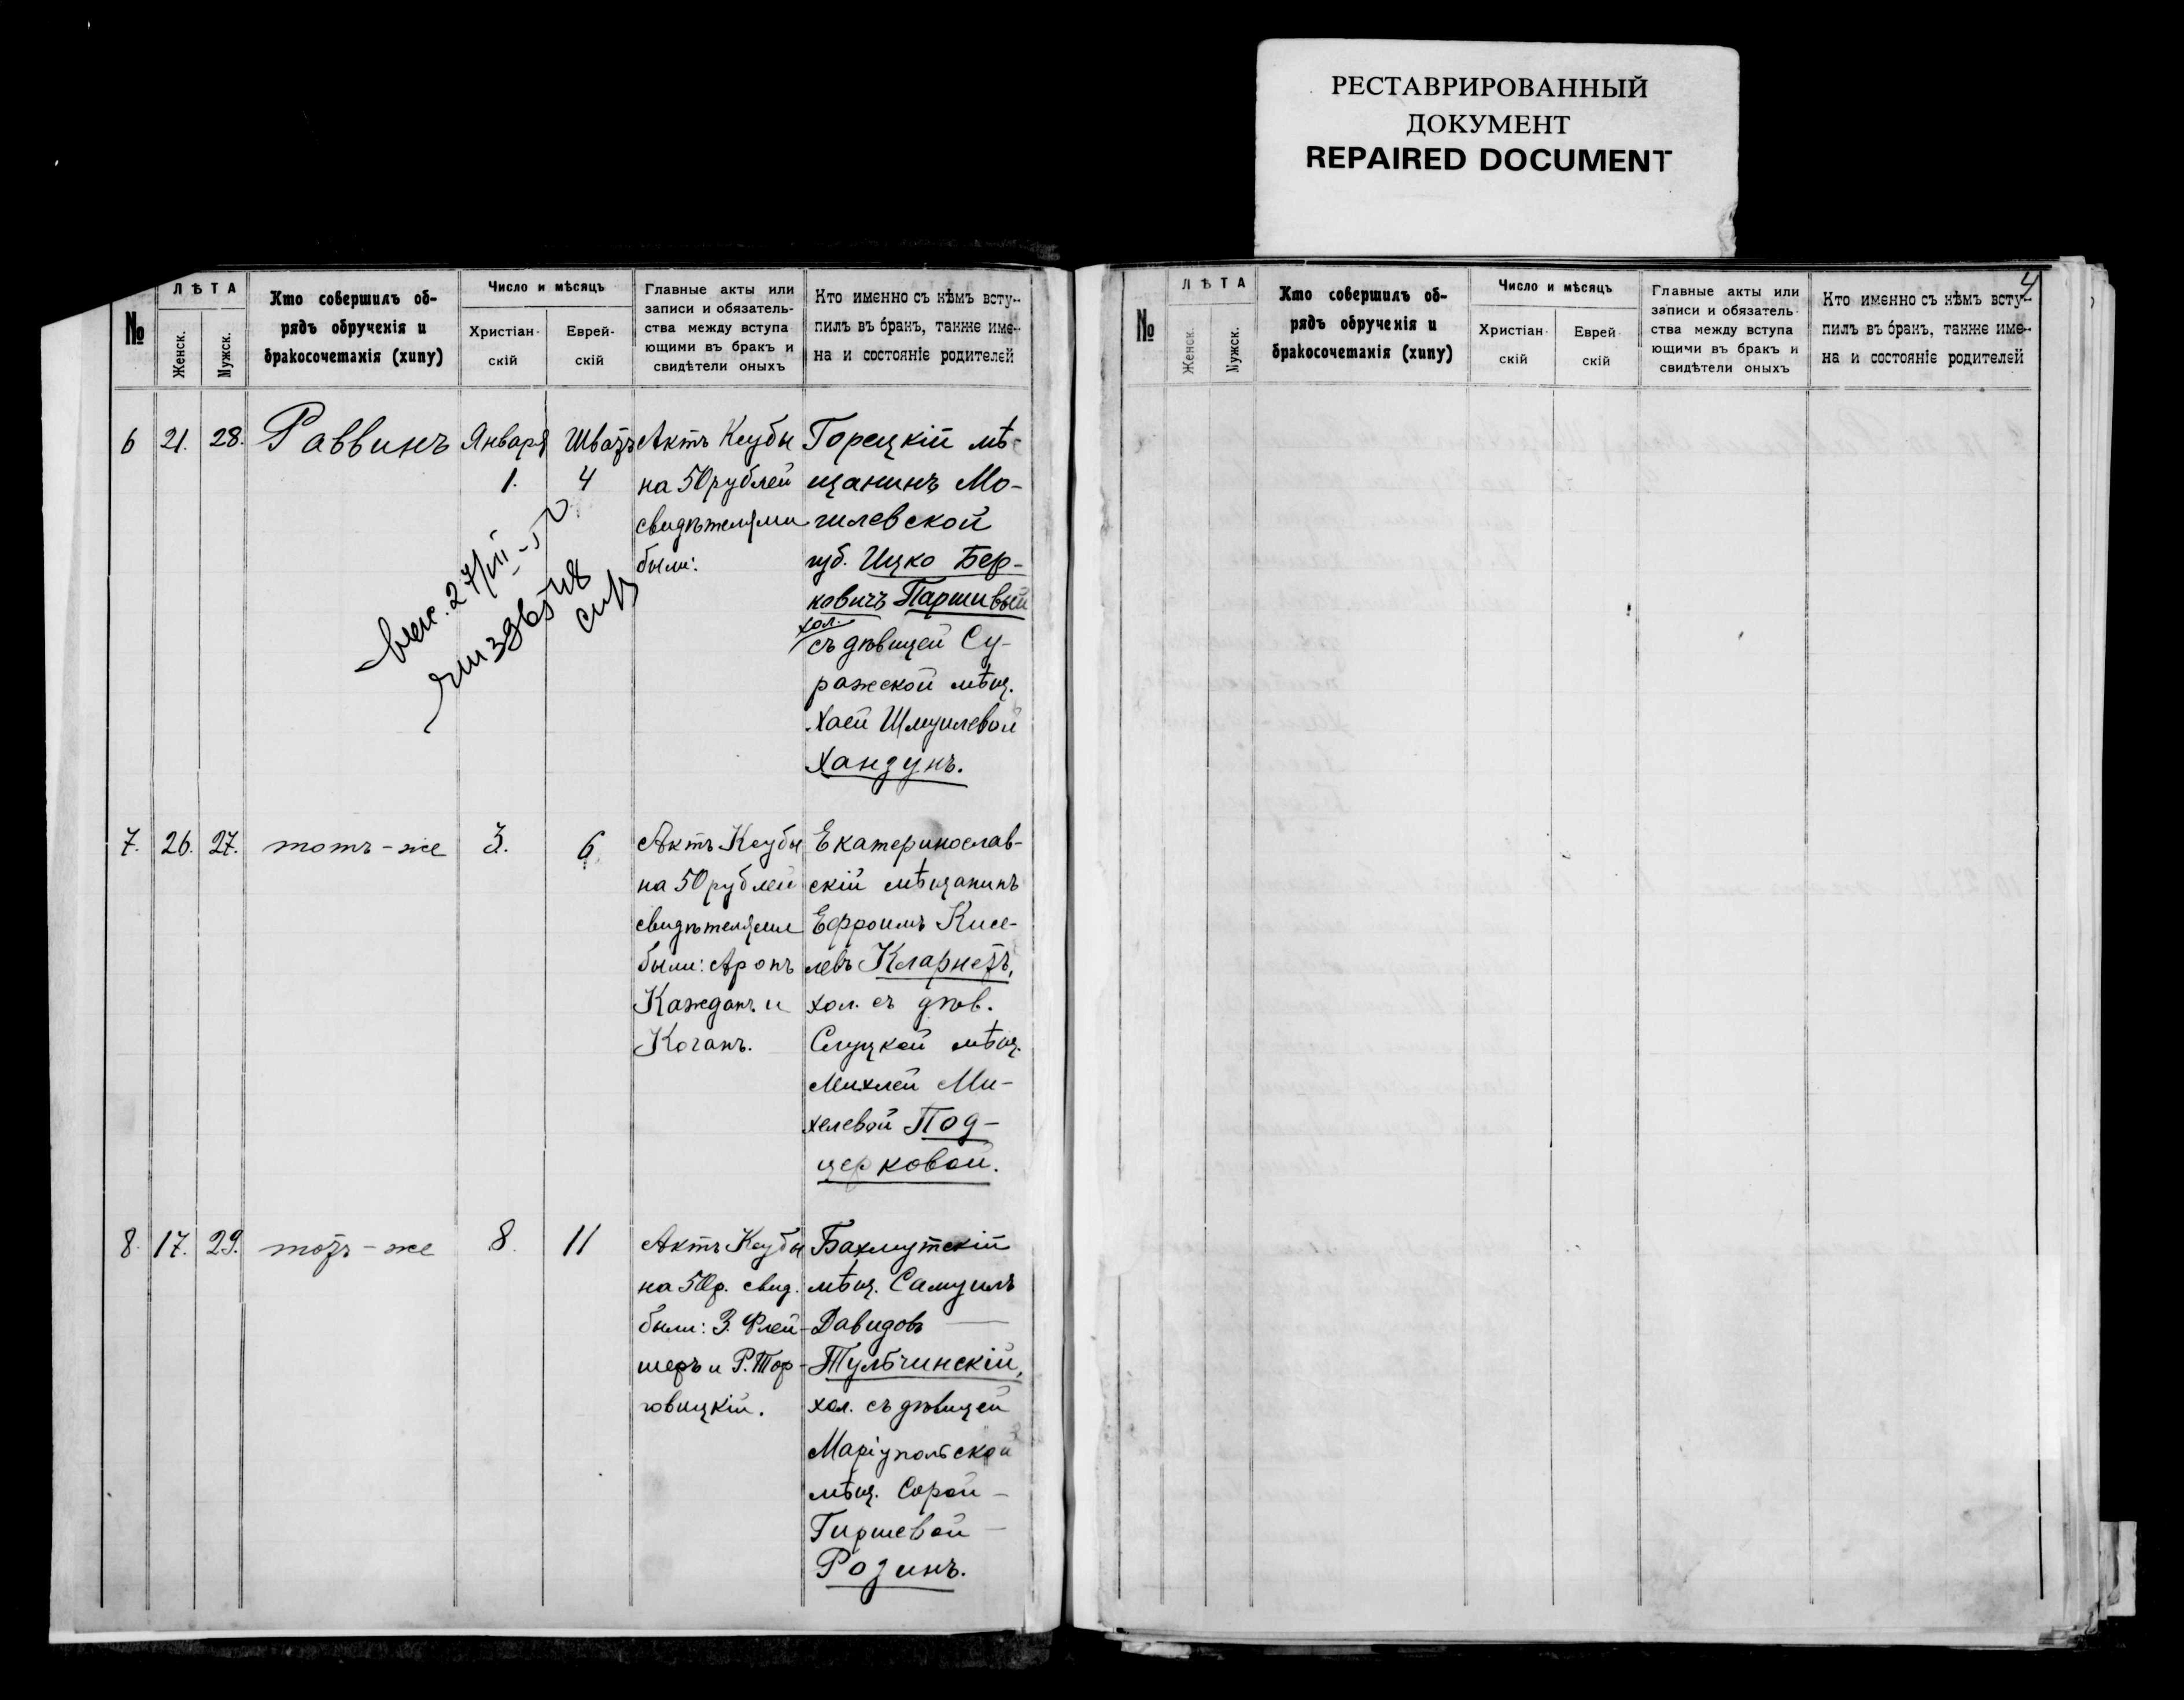 РЕСТАВРИРОВАННЫЙ
ДОКУМЕНТ
REPAIRED DOCUMENT
№
ЛѢТА
Женск.
Мужск.
Кто совершилъ об-
рядъ обрученія и
бракосочетанія (хипу)
Число и мѣсяцъ
Христіан-
скій
Еврей-
скій
Главные акты или
записи и обязатель-
ства между вступа
ющими въ бракъ и
свидѣтели оныхъ
Кто именно съ нѣмъ всту-
пилъ въ бракъ, также име-
на и состояніе родителей
6 21. 28. Раввинъ
Января
1.
Шватъ
4
Актъ Ксубы
на 50 рублей
свидѣтелями
были:
Горецкій мѣ-
щанинъ Мо-
гилевской
губ. Ицко Бер-
ковичъ Паршивый
хол.
съ дѣвицей Су-
ражской мѣщ.
Хаей Шмуилевой
Хандунъ.
7. 26. 27. тотъ-же 3. 6
Актъ Ксубы
на 50 рублей
свидѣтелями
были: Аронъ
Кажданъ и
Коганъ.
Екатеринослав-
скій мѣщанинъ
Ефроимъ Кисе-
левъ Кларнетъ,
хол. съ дѣв.
Слуцкой мѣщ.
Михлей Ми-
хелевой Под-
церковой.
8. 17. 29. тотъ-же 8. 11
Актъ Ксубы
на 50 р. свид.
были: З. Флей-
шеръ и Р. Тор-
говицкій.
Бахмутскій
мѣщ. Самуилъ
Давидовъ
Тульчинскій,
хол. съ дѣвицей
Маріупольской
мѣщ. Сорой-
Гиршевой
Розинъ.
4
№
ЛѢТА
Женск.
Мужск.
Кто совершилъ об-
рядъ обрученія и
бракосочетанія (хипу)
Число и мѣсяцъ
Христіан-
скій
Еврей
скій
Главные акты или
записи и обязатель-
ства между вступа
ющими въ бракъ и
свидѣтели оныхъ
Кто именно съ нѣмъ всту-
пилъ въ бракъ, также име-
на и состояніе родителей